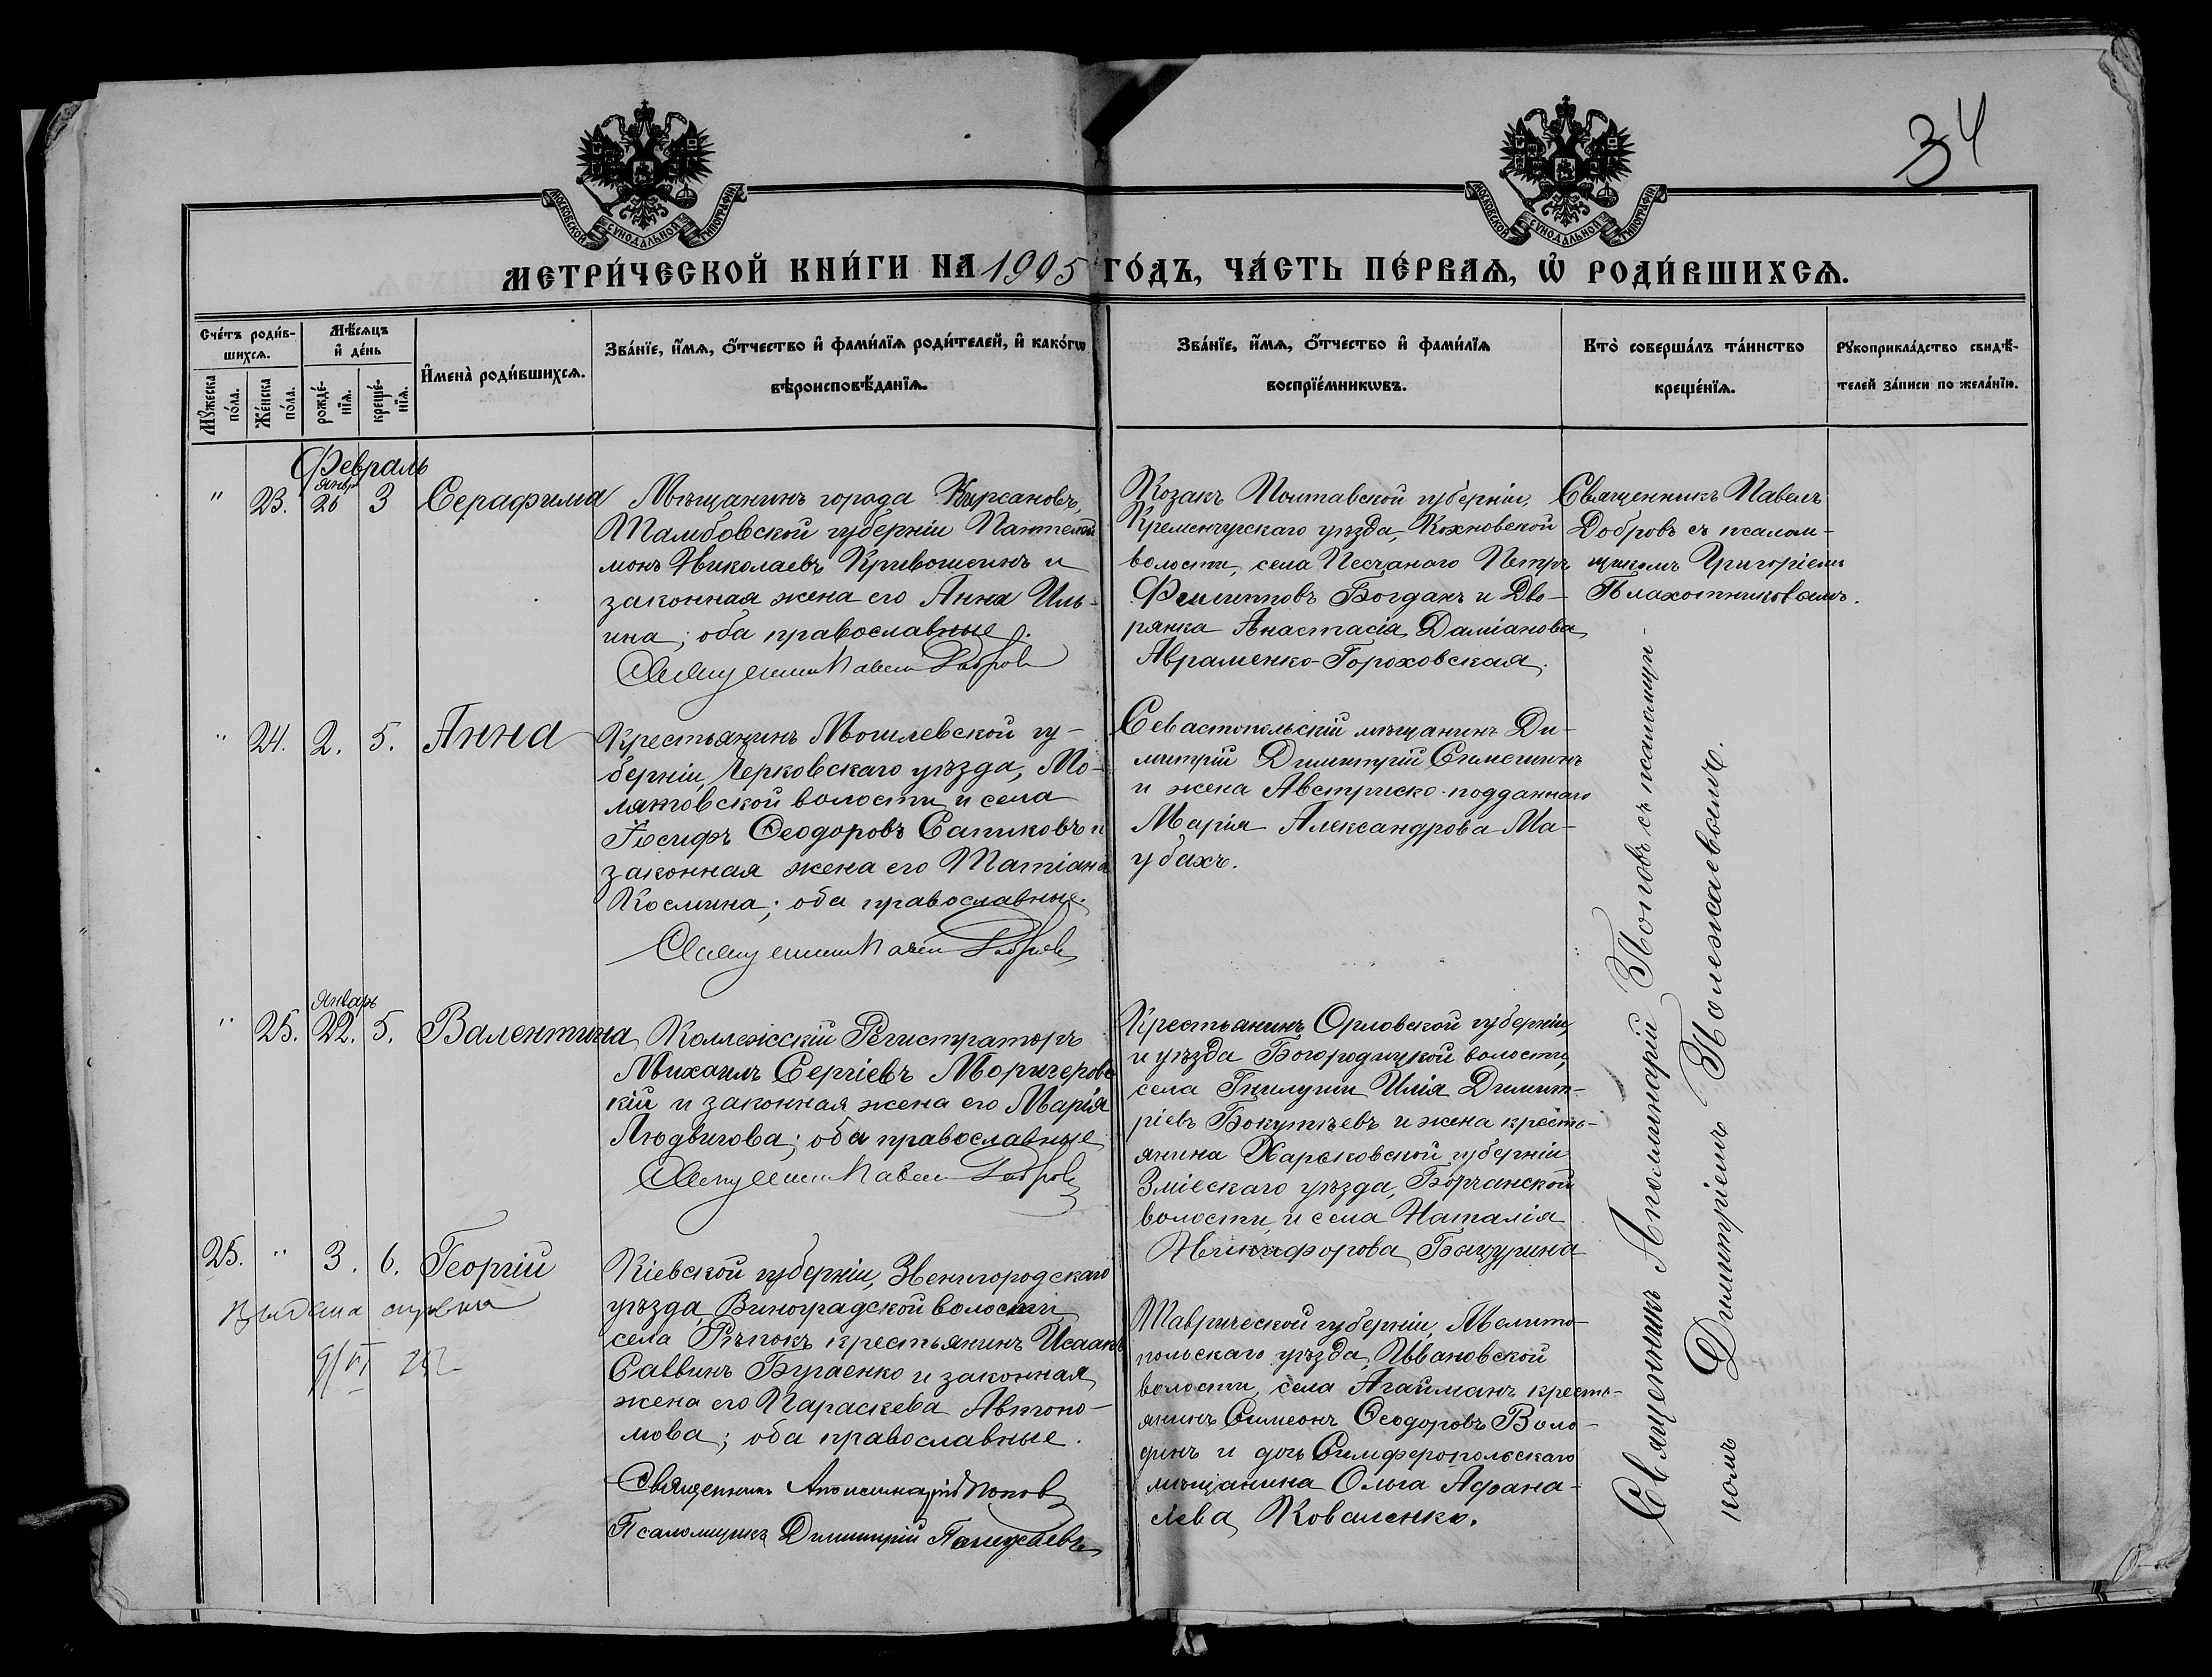 34
МОСКОВСКОЙ СѴНОДАЛЬНОЙ ТИПОГРАФІИ
МОСКОВСКОЙ СѴНОДАЛЬНОЙ ТИПОГРАФІИ
МЕТРИ́ЧЕСКОЙ КНИ́ГИ НА 1905 ГО́ДЪ, ЧА́СТЬ ПЕ́РВАѦ, Ѡ҆ РОДИ́ВШИХСѦ.
Сче́тъ роди́в-
шихсѧ.
Мꙋ́жеска по́ла.
Же́нска по́ла.
Мѣ́сѧцъ
и҆ де́нь
рожде́-
нїѧ.
креще́-
нїѧ.
И҆мена̀ роди́вшихсѧ.
Зва́нїе, и҆́мѧ, ѻ҆́тчество и҆ фами́лїѧ роди́телей, и҆ како́гѡ
вѣроисповѣ́данїѧ.
Зва́нїе, и҆́мѧ, ѻ҆́тчество и҆ фами́лїѧ
воспрїе́мникѡвъ.
Кто̀ соверша́лъ та́инство
креще́нїѧ.
Рꙋкоприкла́дство свидѣ́-
телей за́писи по жела́нїю.
Февраль
" 23. Янвр 26 3 Серафима
Мѣщанинъ города Кирсановъ,
Тамбовской губерніи Пантелей
монъ Николаевъ Кривошеинъ и
законная жена его Анна Иль-
ина; оба православные.
Священникъ Павелъ Добровъ
Козакъ Полтавской губерніи,
Кременчугскаго уѣзда, Кохновской
волости, села Песчанаго Петръ
Филипповъ Богданъ и Дво-
рянка Анастасія Даміанова
Авраменко-Гороховская.
Священникъ Павелъ
Добровъ съ псалом-
щикомъ Григоріемъ
Плахотниковымъ.
" 24. 2. 5. Анна
Крестьянинъ Могилевской гу-
берніи, Черковскаго уѣзда, Мо-
лятовской волости и села
Іосифъ Ѳеодоровъ Сапиковъ и
законная жена его Татіана
Космина; оба православные.
Священникъ Павелъ Добровъ
Севастопольскій мѣщанинъ Ди-
митрій Димитрій Симешинъ
и жена Австриско-подданнаго
Марія Александрова Ма-
убахъ.
" 25. Январь 22. 5. Валентина
Коллежскій Регистраторъ
Михаилъ Сергіевъ Моричеровс
кій и законная жена его Марія
Людвигова; оба православные
Священникъ Павелъ Добровъ
Крестьянинъ Орловской губерніи,
и уѣзда Богородицкой волости,
села Гнилуши Илія Димит-
ріевъ Бокутѣевъ и жена кресть-
янина Харьковской губерніи
Зміескаго уѣзда, Борчанской
волости и села Наталія
Никифорова Бичурина
25. " 3. 6. Георгій
Выдана справка
9/VI
Кіевской губерніи, Звенигородскаго
уѣзда, Виноградской волости,
села Рѣпокъ крестьянинъ Исаакъ
Саввинъ Бураенко и законная
жена его Параскева Автоно-
мова; оба православные.
Священникъ Аполлинарій Поповъ
Псаломщикъ Димитрій Полежаевъ
Таврической губерніи, Мелито-
польскаго уѣзда, Ивановской
волости, села Агайманъ кресть-
янинъ Симеонъ Ѳеодоровъ Воло-
финъ и дочь Симферопольскаго
мѣщанина Ольга Афана-
сьева Коваленко.
Священникъ Аполлинарій Поповъ съ псаломщи-
комъ Димитріемъ Полежаевымъ.